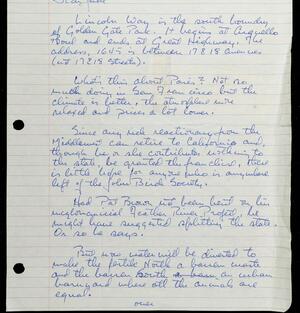 Dear June
Lincoln Way is the south boundry
of Golden Gate Park. It begins at Arguello
Blvd and ends at Great Highway. The
address, 1645 is between 17 & 18 Avenues
(not 17 & 18 Streets).
What's this about Paris? Not so
much doing in San Francisco but the
climate is better, the atmosphere more
relaxed and prices a lot lower.
Since any rich reactionary from the
Middlewest can return to California and,
though he or she contributes nothing to
the state, be granted the franchise, there
is little hope for anyone who is anywhere
left of the John Birch Society.
Had Pat Brown not been bent on his
Feather River Project, he
might have suggested splitting the state.
Or so he says.
But now water will be diverted to
make the fertile North a barren waste
and the barren South an urban
barnyard where all the animals are
equal.
over